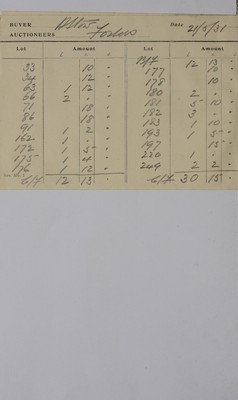 BUYER
Date 21/5/31
AUCTIONEERS Fosters
Lot £ Amount
33 10 -
34 12 -
63 1 12 -
66 2 - -
71 18 -
86 18 -
91 1 2 -
162 1 - -
172 1 5 -
175 1 4 -
176 1 12 -
C/F 12 13 -
Lot Amount
B/F 12 13 -
177 10 -
178 10 -
180 2 - -
181 5 10 -
182 3 - -
183 1 10 -
193 1 5 -
197 15 -
220 1 - -
249 2 2 -
C/F 30 15 -